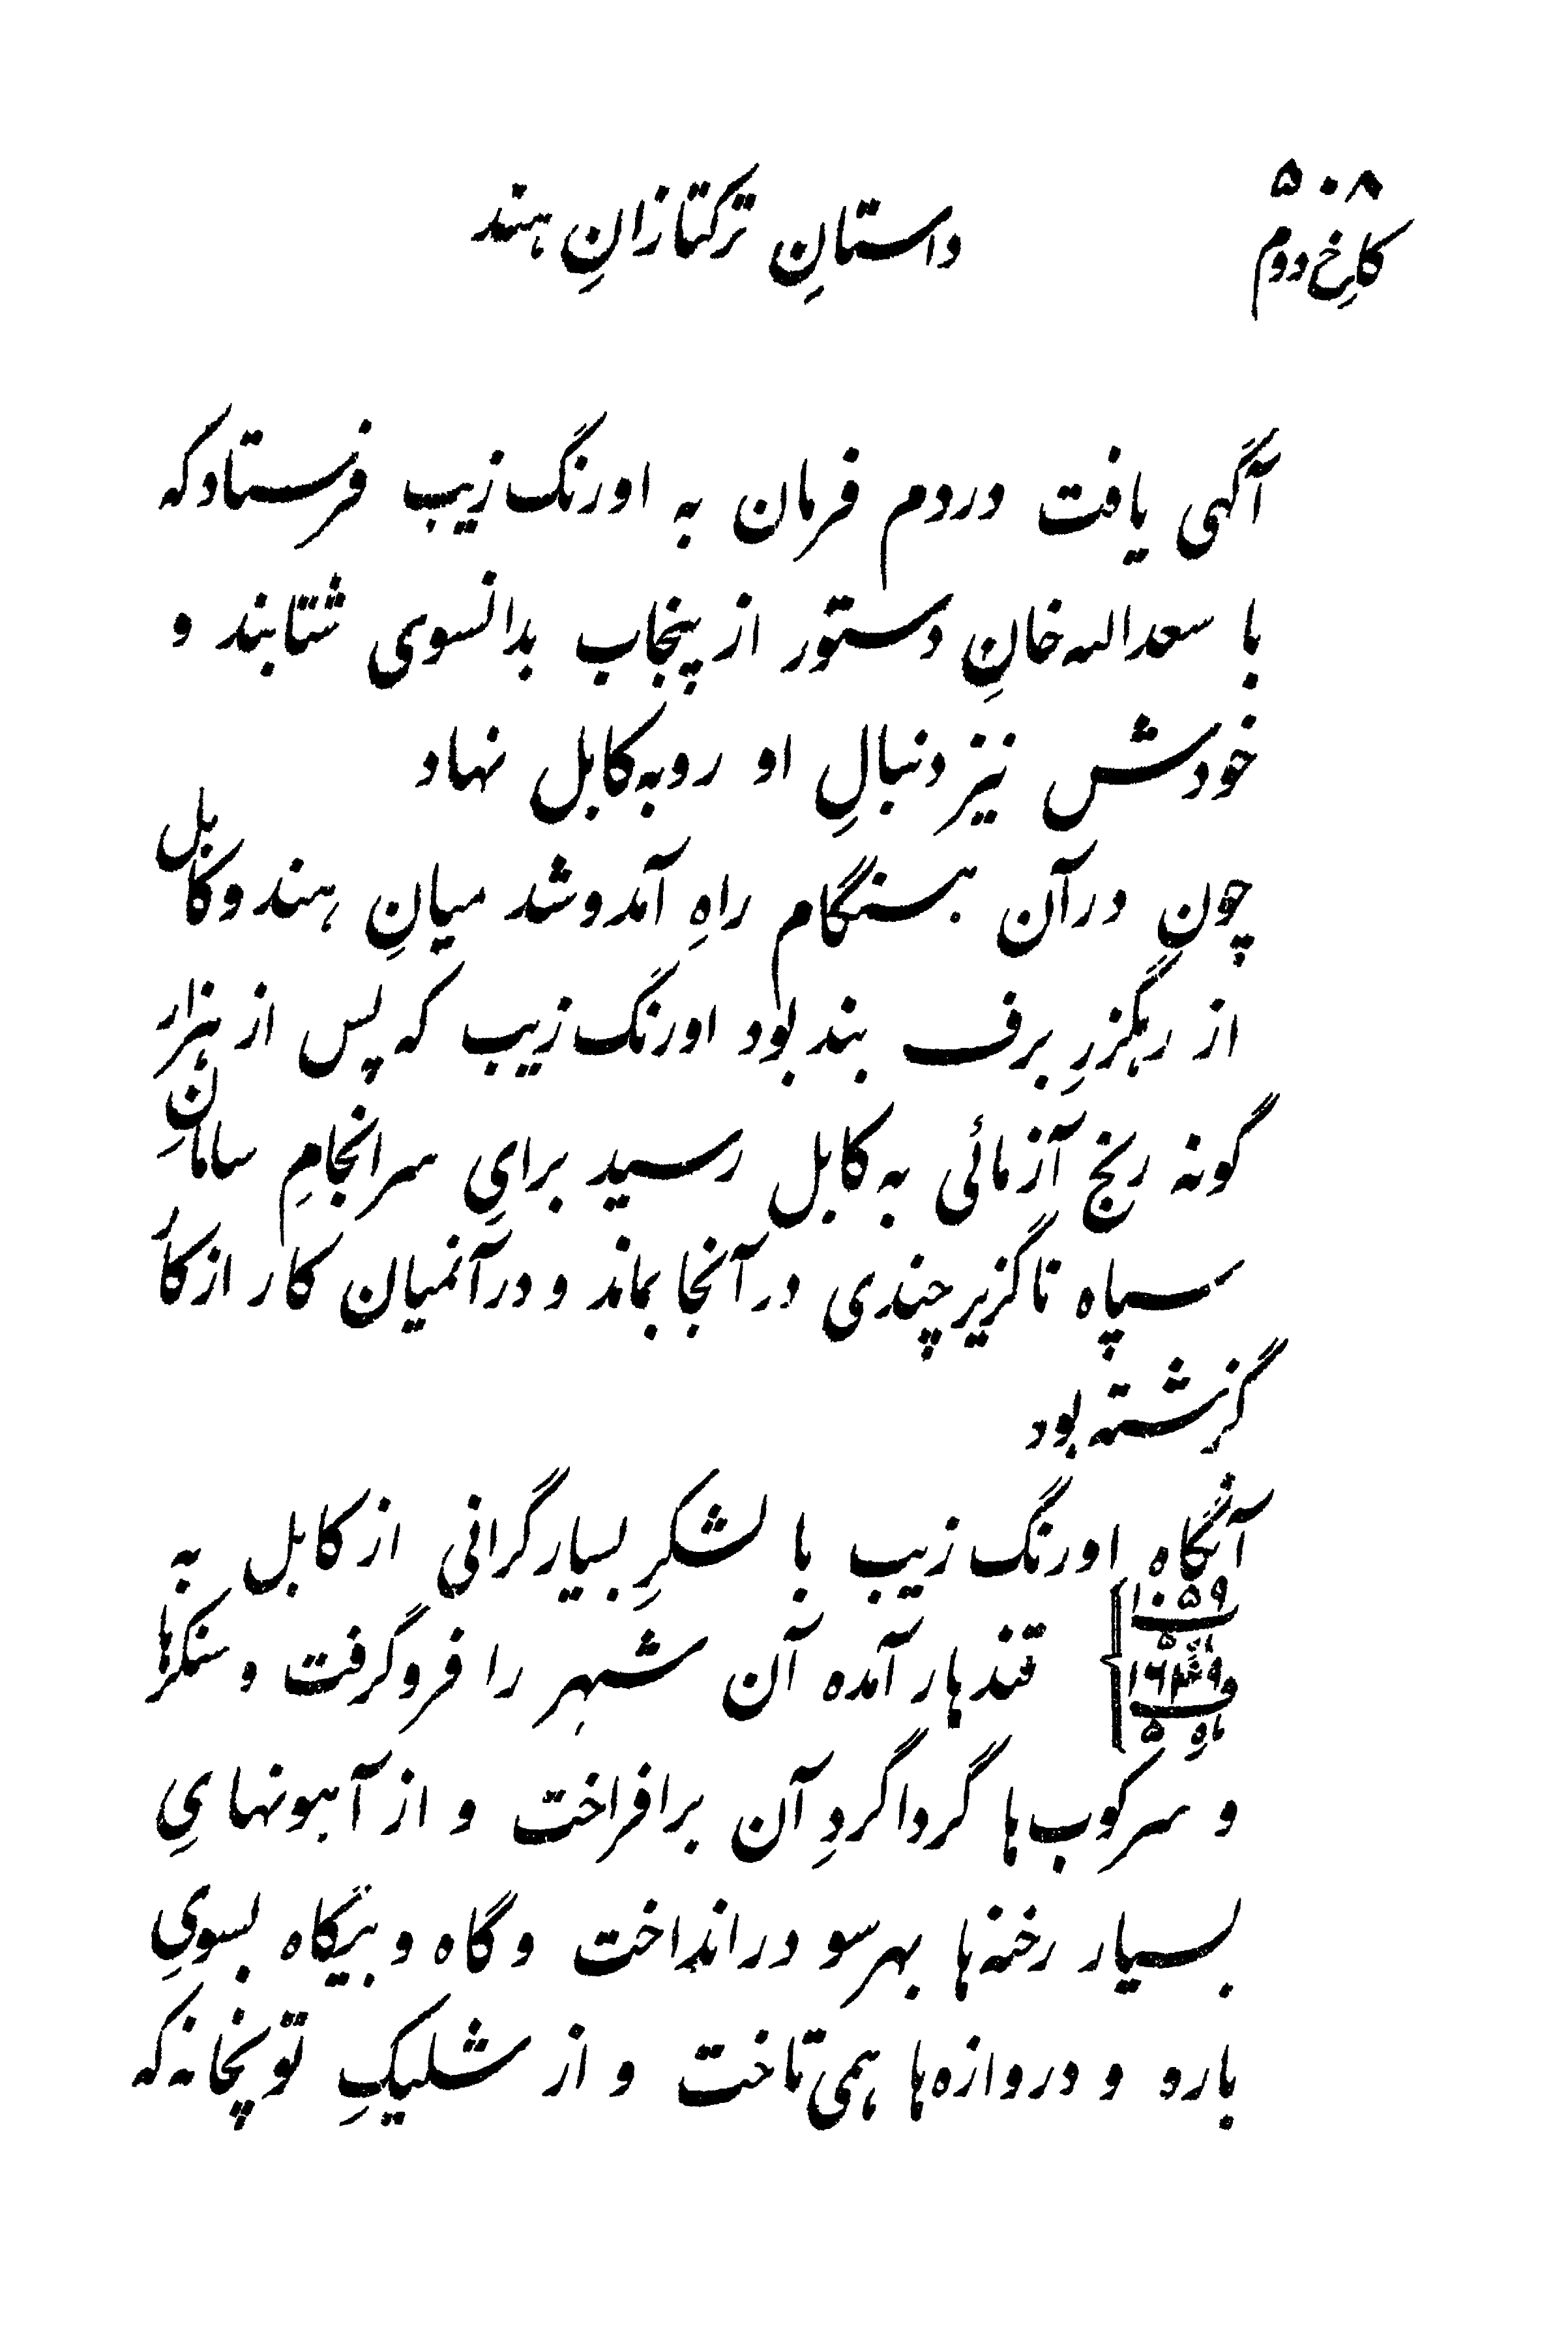 ۵۰۸
کاخِ دوم
داستانِ ترکتازانِ هند
آگهی یافت دردم فرمان به اورنگ‌زیب فرستاد که
با سعدالله‌خانِ دستور از پنجاب بدانسوی شتابند و
خودش نیز دنبالِ او رو به کابل نهاد
چون درآن هنگام راهِ آمد و شد میانِ هند و کابل
از رهگزرِ برف بند بود اورنگ‌زیب که پس از هزار
گونه رنج آزمائی به کابل رسید برایِ سرانجامِ سامانِ
سپاه ناگزیر چندی درآنجا بماند و درآنمیان کار از کار
گزشته بود
آنگاه اورنگ‌زیب با لشکرِ بسیار گرانی از کابل به
قندهار آمده آن شهر را فروگرفت و سنگرها
۱۰۵۹
۱۶۴۹
و سرکوب‌ها گرداگردِ آن برافراخت و از آهونهایِ
بسیار رخنه‌ها بهرسو درانداخت و گاه و بیگاه بسویِ
بارو و دروازه‌ها همی تاخت و از شلیکِ توپخانه که